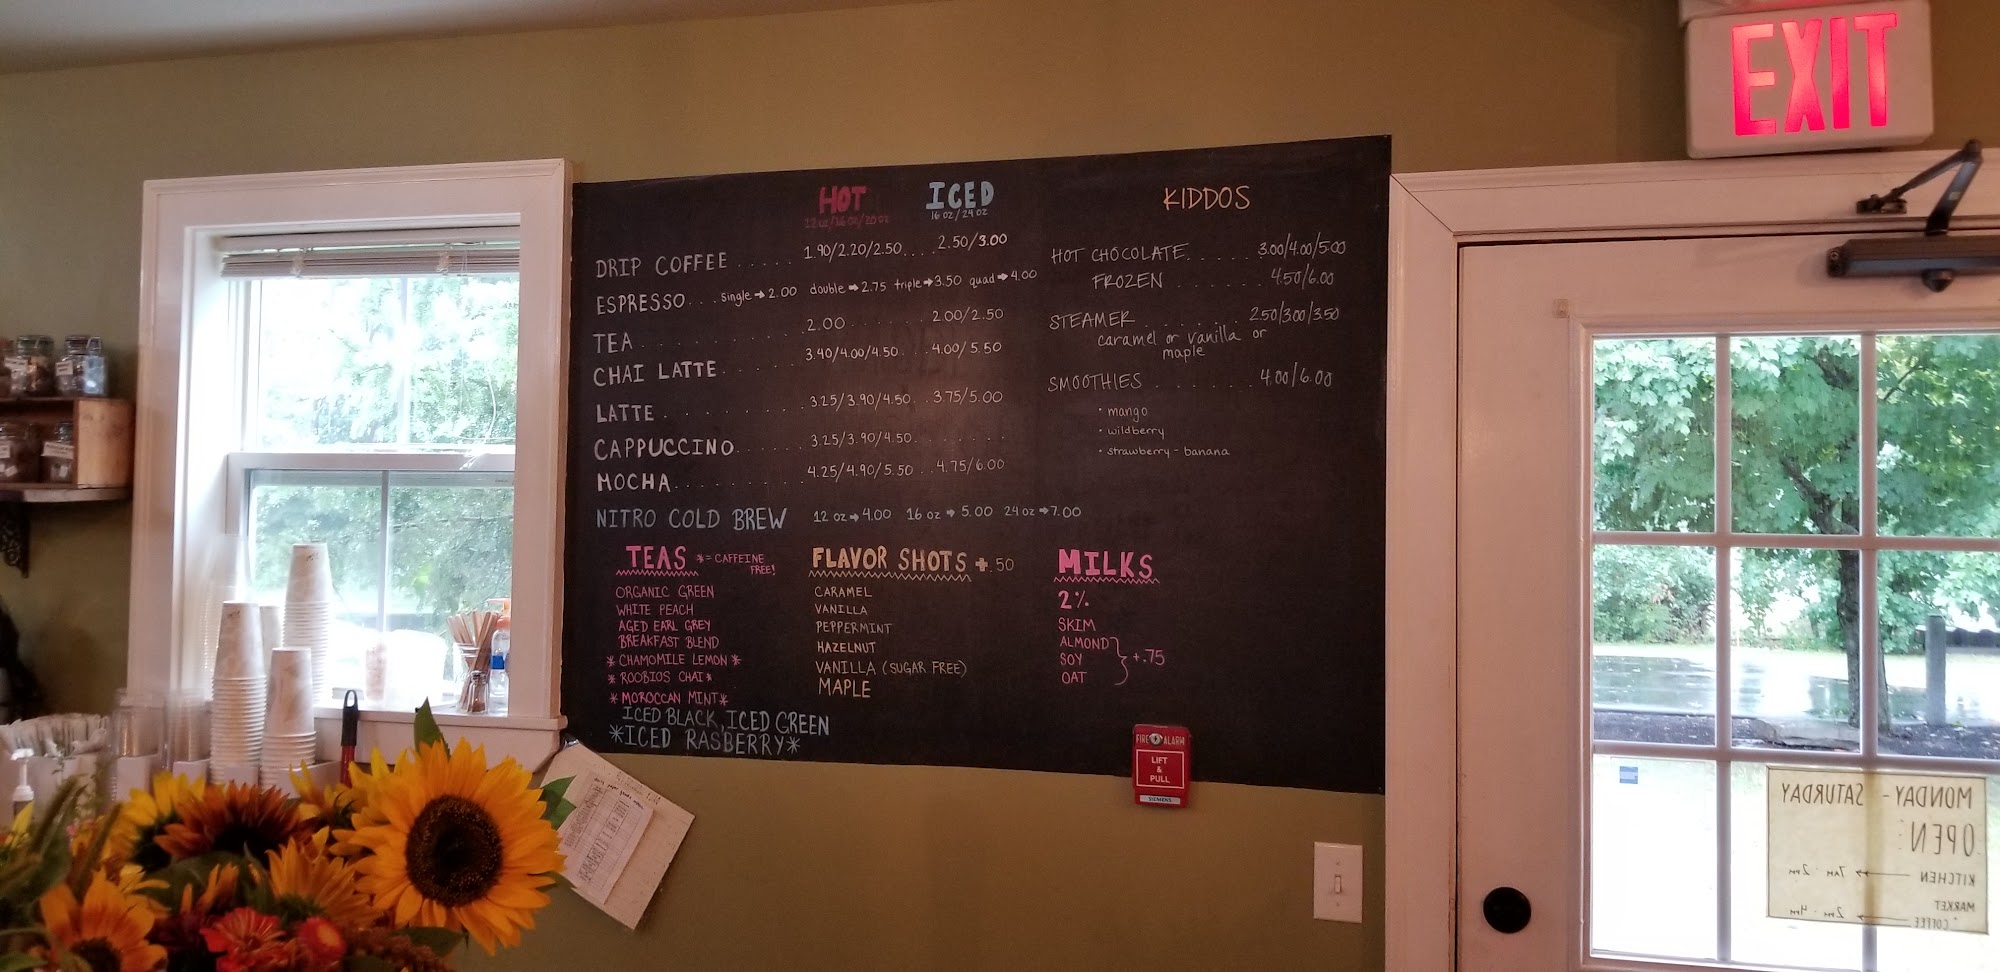 EXIT
HOT ICED
12 oz/16 oz/20 oz 16 oz/24 oz
DRIP COFFEE ..... 1.90/2.20/2.50.... 2.50/3.00
ESPRESSO... single→2.00 double→2.75 triple→3.50 quad→4.00
TEA ............ 2.00 ........ 2.00/2.50
CHAI LATTE ...... 3.40/4.00/4.50... 4.00/5.50
LATTE .......... 3.25/3.90/4.50.. 3.75/5.00
CAPPUCCINO ..... 3.25/3.90/4.50........
MOCHA......... 4.25/4.90/5.50 .. 4.75/6.00
NITRO COLD BREW 12 oz→4.00 16 oz→5.00 24 oz→7.00
KIDDOS
HOT CHOCOLATE...... 3.00/4.00/5.00
FROZEN ....... 4.50/6.00
STEAMER ........ 2.50/3.00/3.50
caramel or vanilla or
maple
SMOOTHIES ........ 4.00/6.00
• mango
• wildberry
• strawberry - banana
TEAS *= CAFFEINE
FREE!
ORGANIC GREEN
WHITE PEACH
AGED EARL GREY
BREAKFAST BLEND
* CHAMOMILE LEMON *
* ROOBIOS CHAI *
* MOROCCAN MINT *
ICED BLACK, ICED GREEN
*ICED RASBERRY*
FLAVOR SHOTS +.50
CARAMEL
VANILLA
PEPPERMINT
HAZELNUT
VANILLA (SUGAR FREE)
MAPLE
MILKS
2%
SKIM
ALMOND
SOY +.75
OAT
FIRE ALARM
LIFT
&
PULL
SIEMENS
MONDAY - SATURDAY
OPEN:
KITCHEN → 7AM - 2PM
MARKET
+ COFFEE → 2PM - 4PM